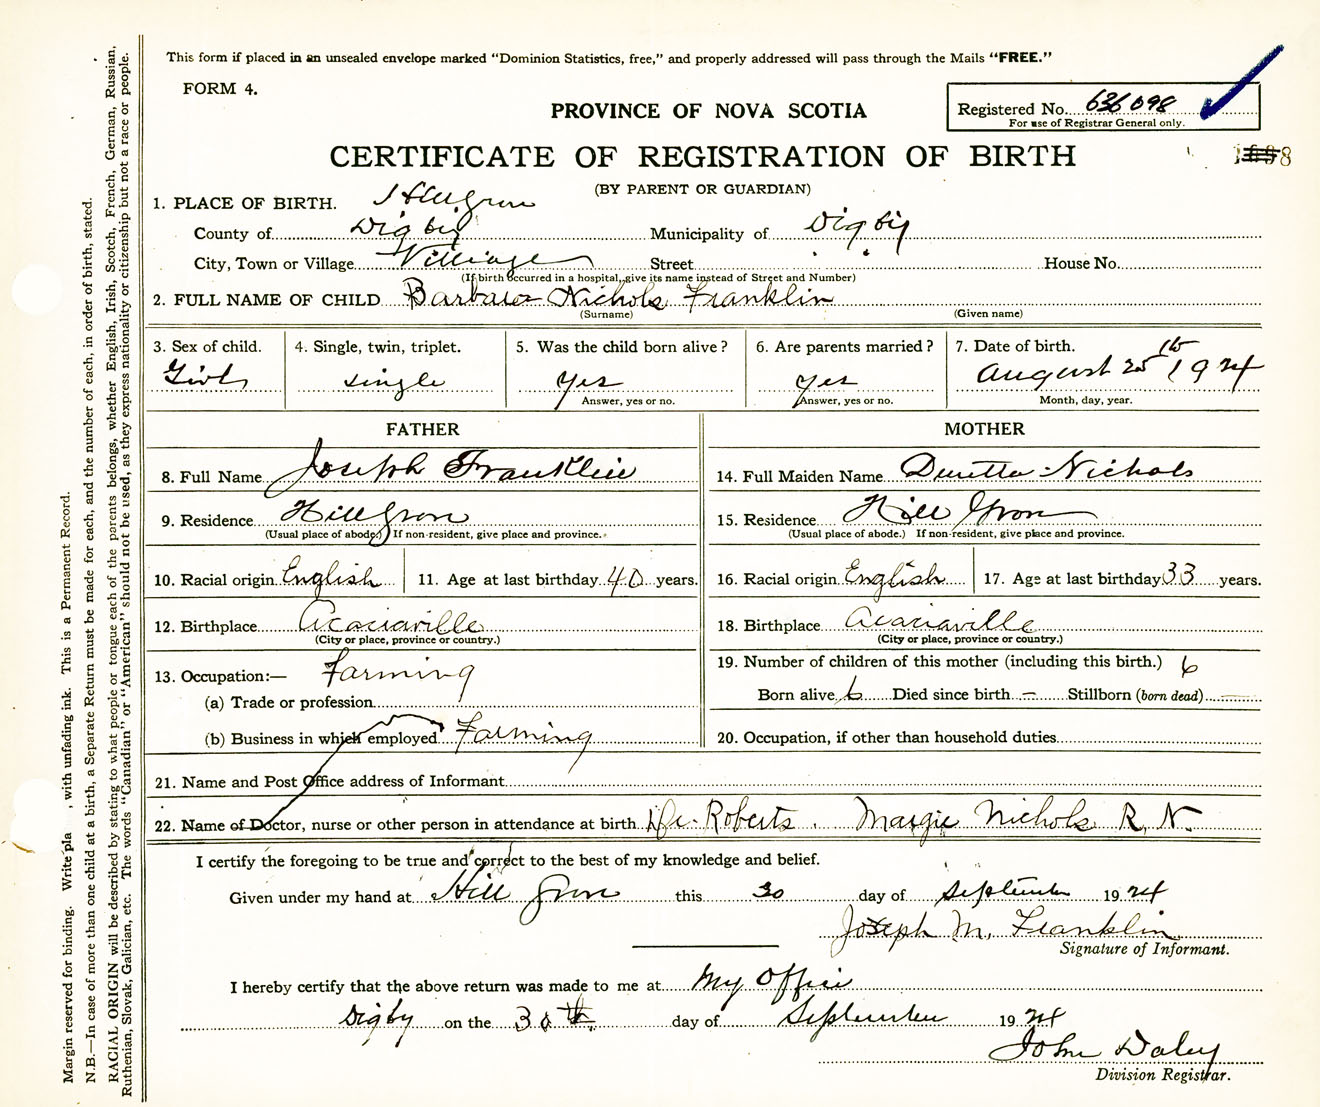 This form if placed in an unsealed envelope marked "Dominion Statistics, free," and properly addressed will pass through the Mails "FREE."
FORM 4.
PROVINCE OF NOVA SCOTIA
Registered No. 636098
For use of Registrar General only.
CERTIFICATE OF REGISTRATION OF BIRTH
(BY PARENT OR GUARDIAN)
1. PLACE OF BIRTH. Hillgrove
County of Digby Municipality of Digby
City, Town or Village Village Street House No.
(If birth occurred in a hospital, give its name instead of Street and Number)
2. FULL NAME OF CHILD Barbara Nichols Franklin
(Surname) (Given name)
3. Sex of child. 4. Single, twin, triplet. 5. Was the child born alive? 6. Are parents married? 7. Date of birth.
Girl single yes yes August 25th 1924
Answer, yes or no. Answer, yes or no. Month, day, year.
FATHER MOTHER
8. Full Name Joseph Franklin 14. Full Maiden Name Nichols
9. Residence Hillgrove 15. Residence Hill Grove
(Usual place of abode.) If non-resident, give place and province. (Usual place of abode.) If non-resident, give place and province.
10. Racial origin English 11. Age at last birthday 40 years. 16. Racial origin English 17. Age at last birthday 33 years.
12. Birthplace Acaciaville 18. Birthplace Acaciaville
(City or place, province or country.) (City or place, province or country.)
13. Occupation:— Farming 19. Number of children of this mother (including this birth.) 6
(a) Trade or profession Born alive 6 Died since birth – Stillborn (born dead)
(b) Business in which employed Farming 20. Occupation, if other than household duties
21. Name and Post Office address of Informant
22. Name of Doctor, nurse or other person in attendance at birth Dr. Roberts. Margie Nichols R. N.
I certify the foregoing to be true and correct to the best of my knowledge and belief.
Given under my hand at Hill Grove this 30 day of September 1924
Joseph M. Franklin
Signature of Informant.
I hereby certify that the above return was made to me at My Office
Digby on the 30th day of September 1924
John Daley
Division Registrar.
Margin reserved for binding. Write pla , with unfading ink. This is a Permanent Record.
N.B.—In case of more than one child at a birth, a Separate Return must be made for each, and the number of each, in order of birth, stated.
RACIAL ORIGIN will be described by stating to what people or tongue each of the parents belongs, whether English, Irish, Scotch, French, German, Russian,
Ruthenian, Slovak, Galician, etc. The words "Canadian" or "American" should not be used, as they express nationality or citizenship but not a race or people.